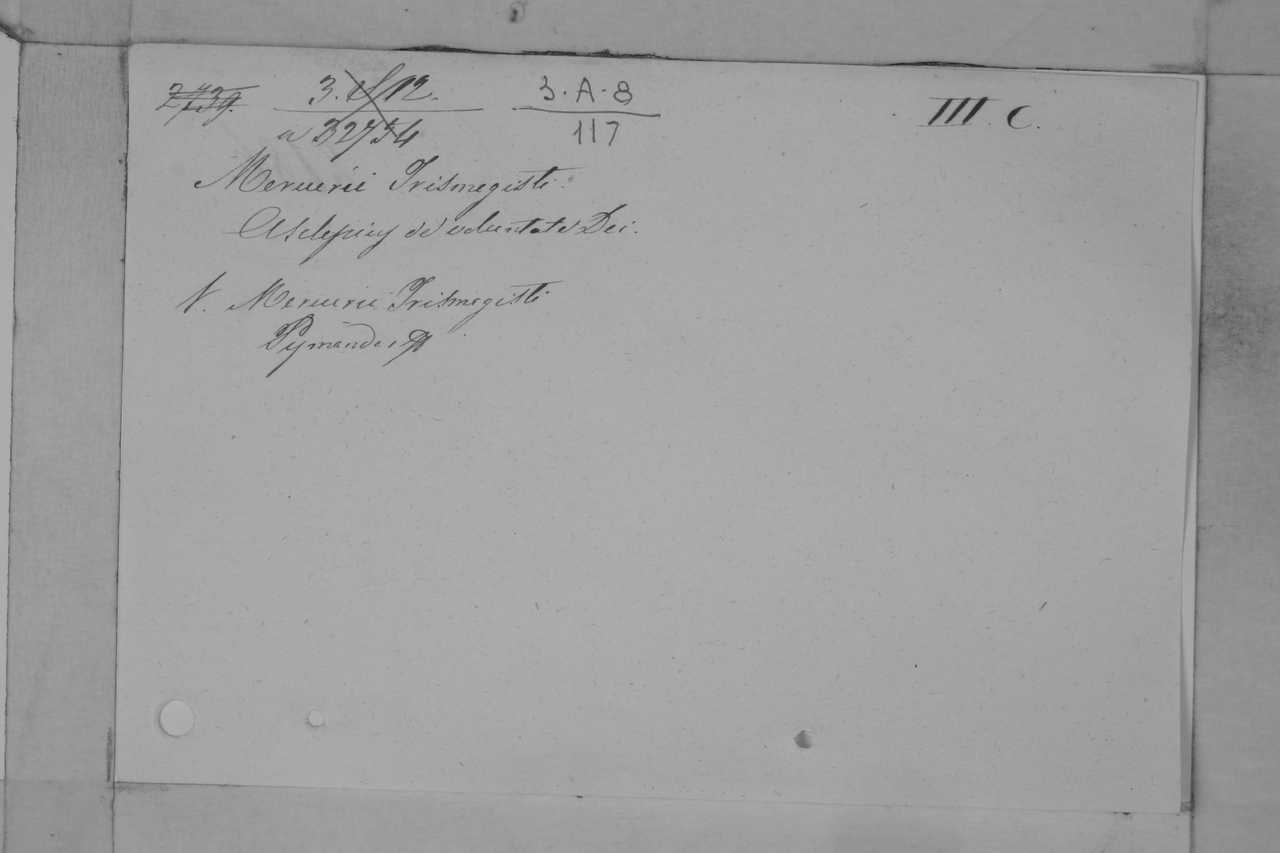 3. A - 8
117
III. C.
Mercurii Trismegisti
Asclepius de voluntate Dei.
V. Mercurii Trismegisti
Pymander